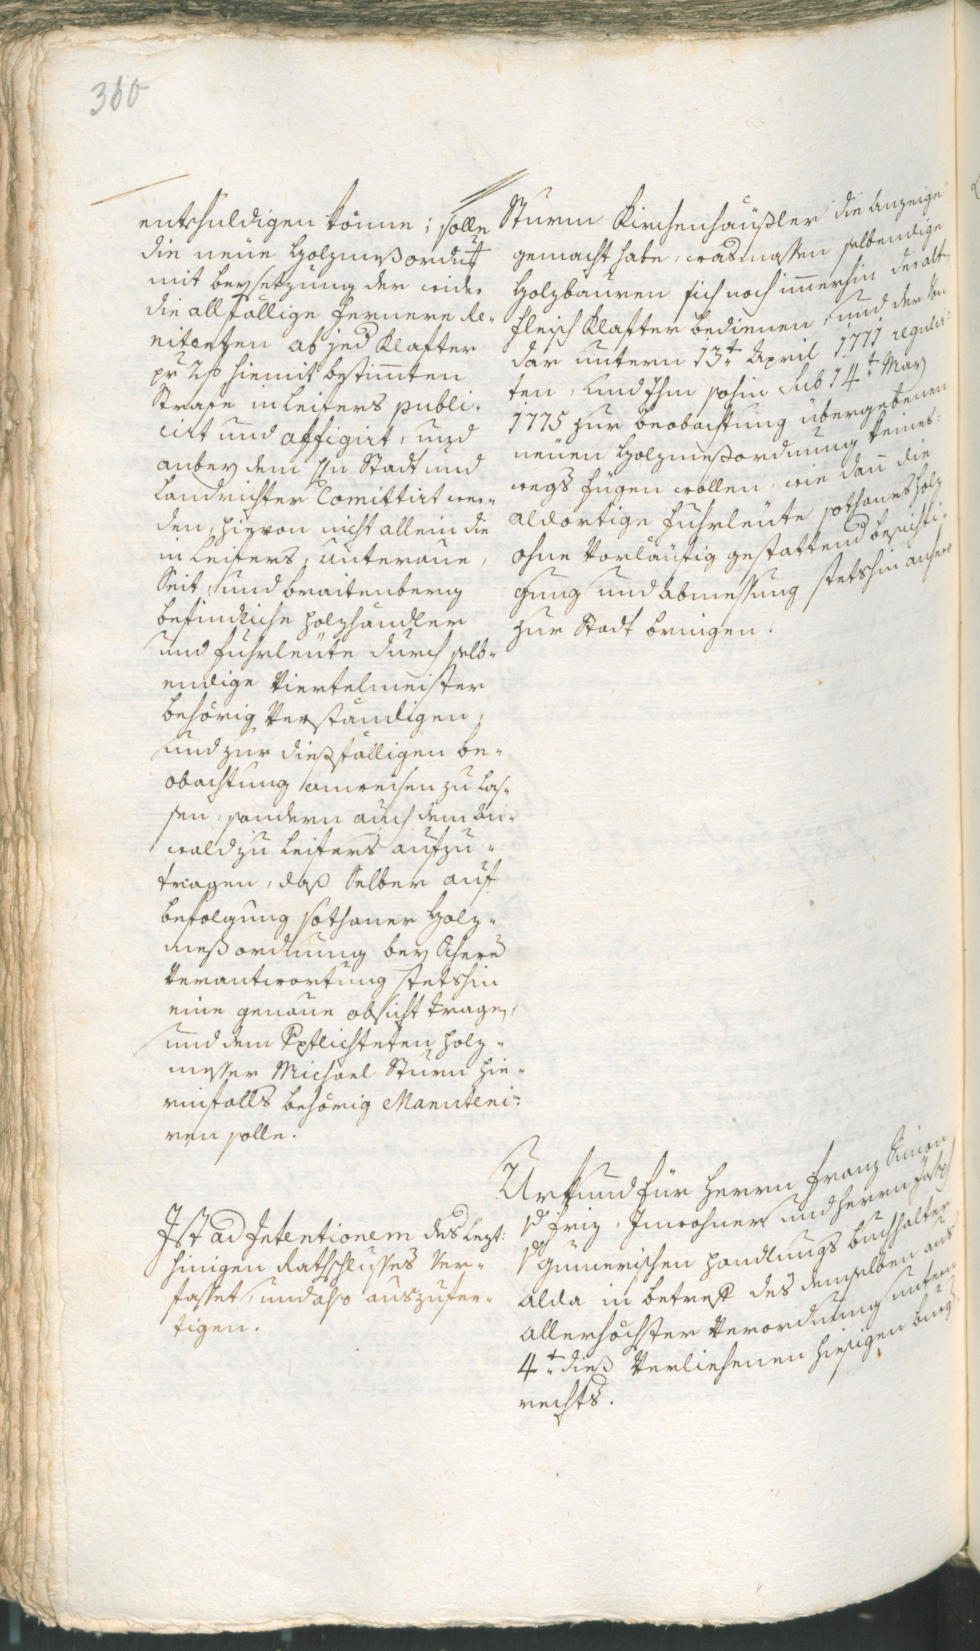 360
entschuldigen könne; solle
die neüe Holzmeßordn̄g
mit beysetzung der wider
die allfällige fernere Re-
nitenten ab jed Klafter
pr 2 fl hiemit bestimmten
Strafe in Leifers publi-
cirt und affigirt, und
anbey dem Hn Stadt und
Landrichter Comittirt wer-
den, hievon nicht allein die
in Leifers, unteraue,
Seit, und braitenberg
befindliche holzhändler
und fuhrleüte durch selb-
endige Viertelmeister
behörig Verständigen,
und zur dießfälligen be-
obachtung anweisen zu las-
sen, sondern auch dem An-
wald zu Leifers aufzu-
tragen, daß selber auf
befolgung sothaner Holz-
meßordnung bey schwerer
Verantwortung stetshin
eine genaue obsicht trage,
und dem Verpflichteten holz-
messer Michael Sturm hie-
rinfalls behörig Manuteni-
ren solle.
Ist ad Intentionem des lezt-
hinigen Rathschlusses Ver-
fasset, und also auszufer-
tigen.
Sturm Kirchenhäußler die Anzeige
gemacht habe, wasmassen selbendige
Holzbauren sich noch immerhin der alt
Fleisch Klafter bedienen, und der Von
dar unterm 13t April 1771 regulir-
ten, und Ihm sohin sub 14t May
1775 zur beobachtung übergebenen
neüen Holzmeßordnung keines-
wegs fügen wollen, wie dan̄ die
aldortige fuhrleüte sothanes holz
ohne Vorläufig gestattend besichti-
gung und abmessung stetshin anhero
zur Stadt bringen.
Urkund für Herrn Franz Simon
v Friz, Inwohner und Herrn Joseph
v Gumerischen Handlungs buchhalter
alda in betreff des demselben aus
allerhöchster Verordnung unterm
4t dieß Verliehenen hiesigen burg-
rechts.